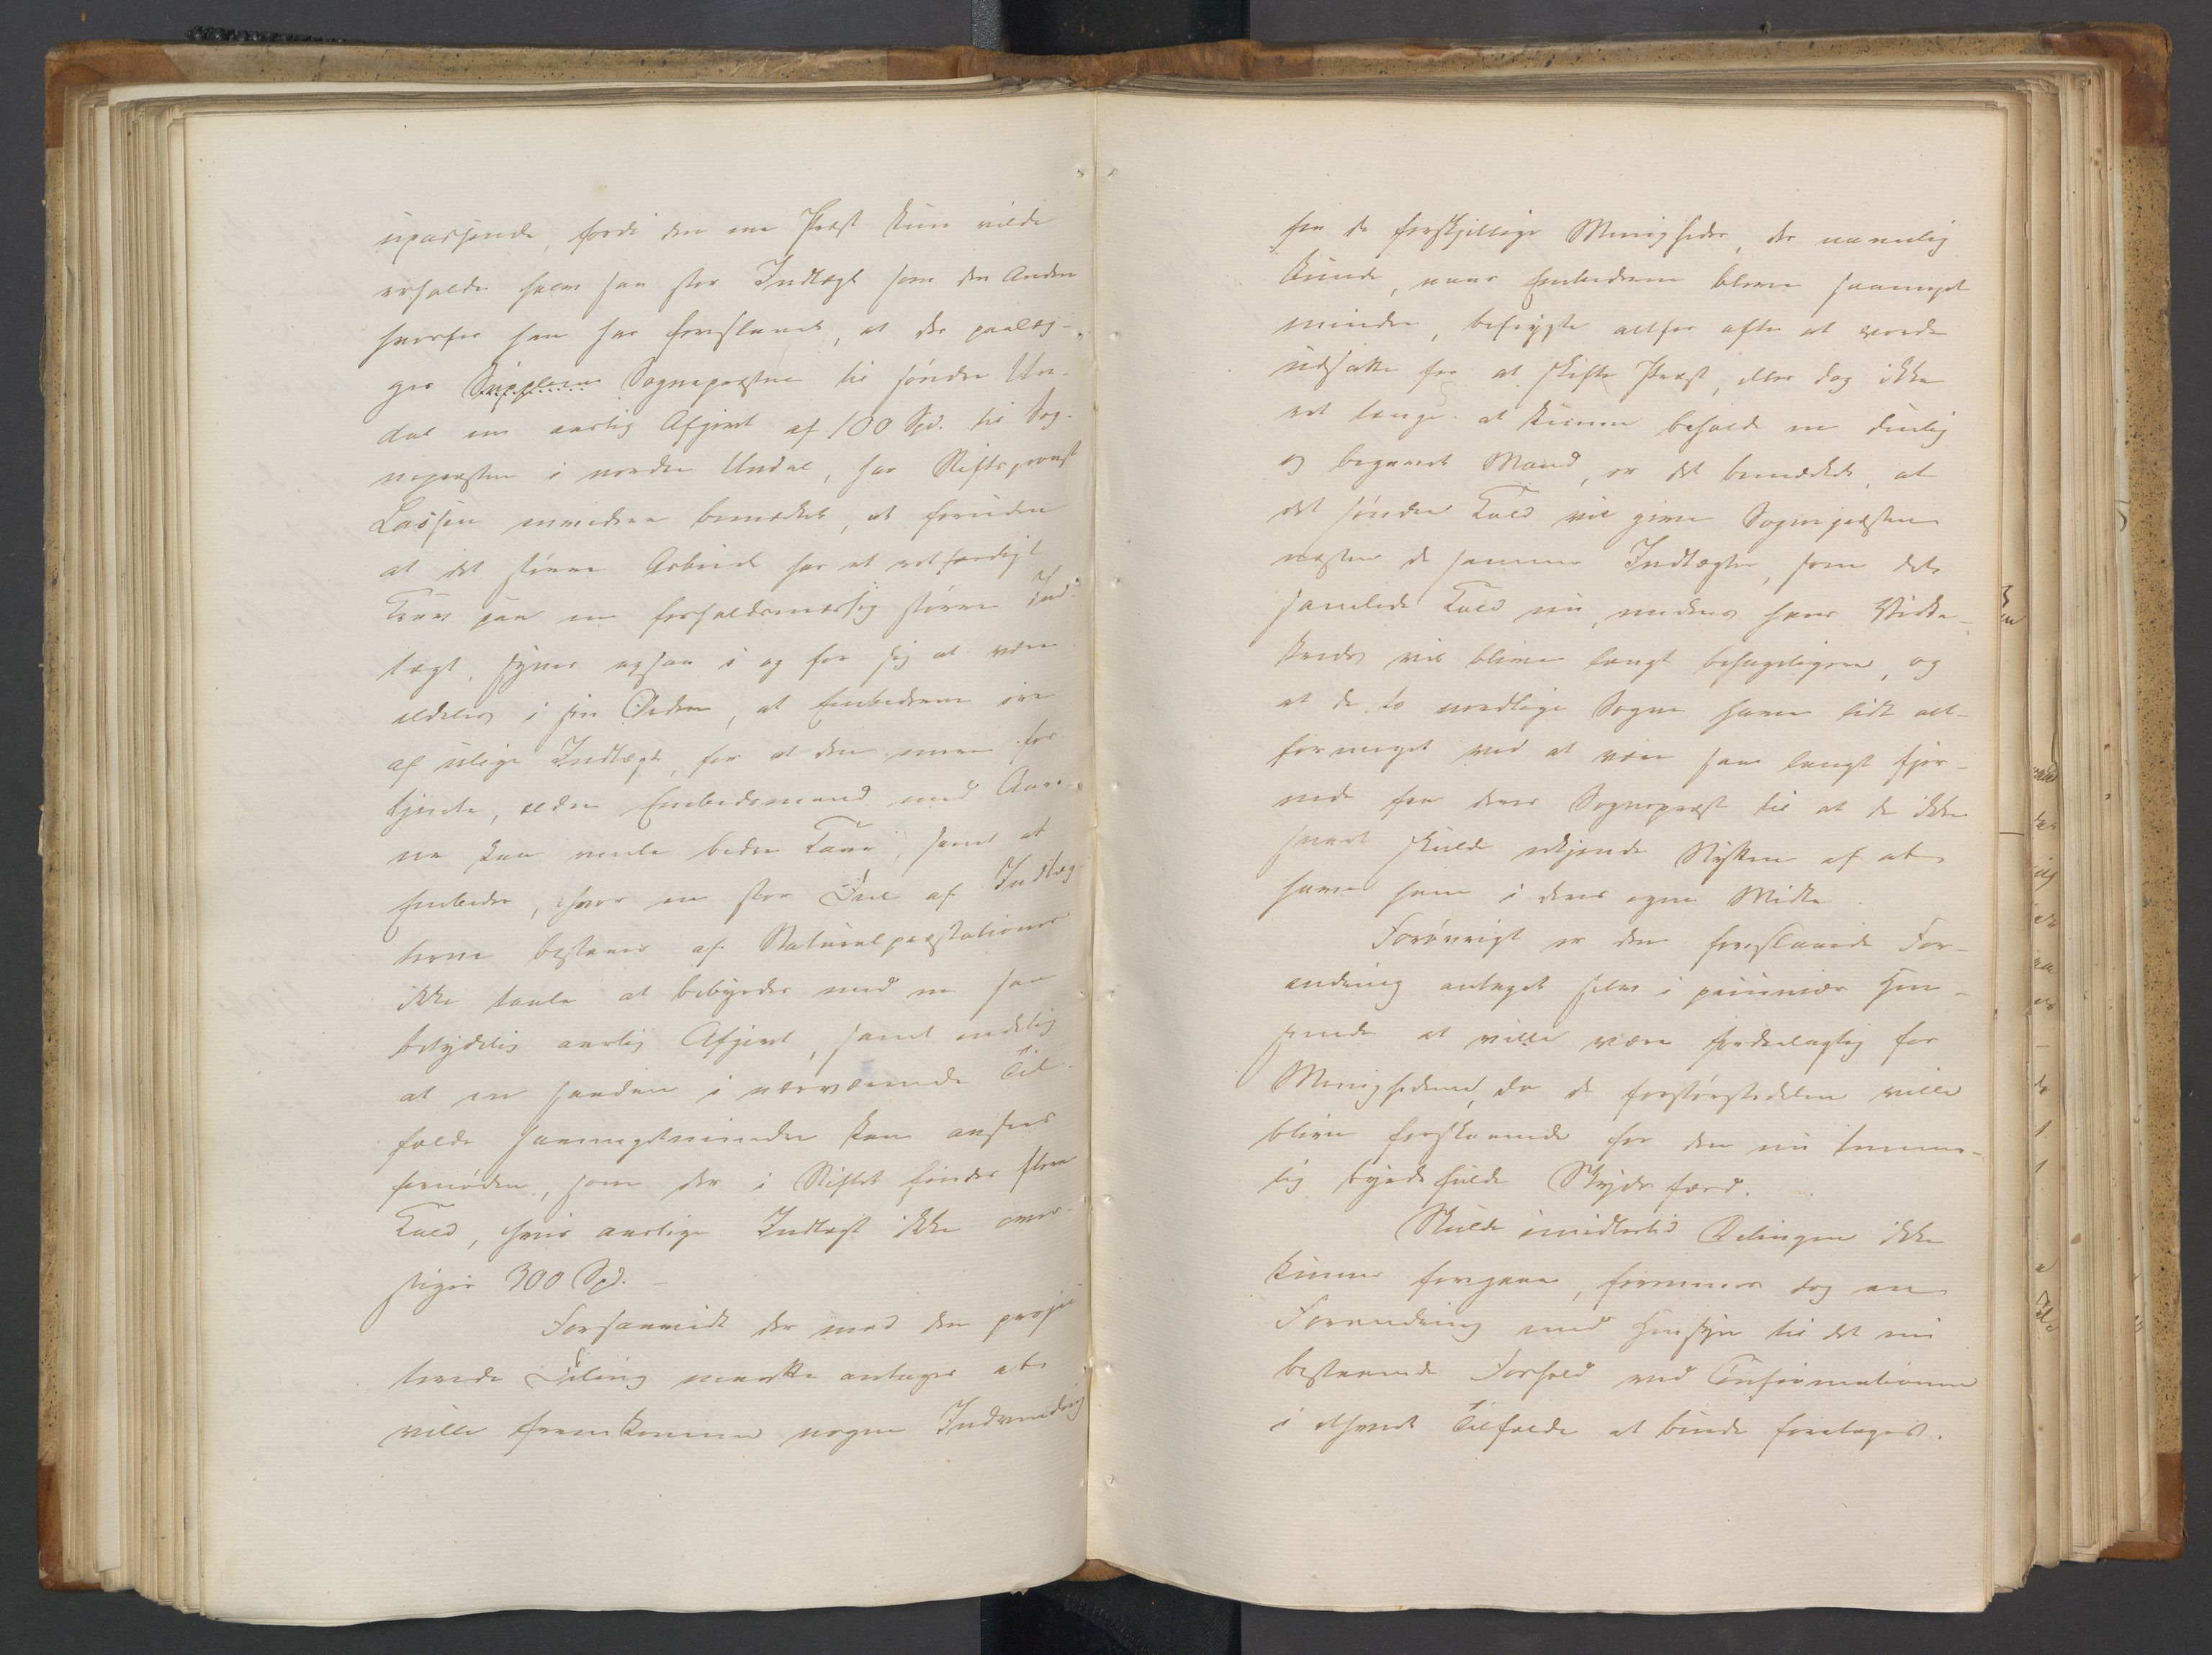 upassende, fordi den ene Præst kun vilde
erholde halv saa stor Indtægt som den Anden
hvorfor han har foreslaaet, at der paalæg-
ges Sognepræsten til søndre Un-
dal en aarlig Afgivt af 100 Spd. til Sog-
nepræsten i nordre Undal, har Stiftsprovst
Lassen imidlera bemærket, at foruden
at det større Arbeide har et retfærdigt
Krav paa en forholdsmæssig større Ind-
tægt, synes ogsaa i og for sig at være
aldeles i sin Orden, at Embederne ere
af ulige Indtægt, for at den mere for
tjente, ældre Embedsmand med Aare-
ne kan vente bedre Kaar, samt at
Embeder, hvor en stor Deel af Indtæg-
terne bestaaer af Naturalpræstationer
ikke taale at bebyrdes med en saa
betydelig aarlig Afgivt, samt endelig
at en saadan i nærværende Til-
fælde saameget mindre kan ansees
fornøden, som der i Stiftet findes flere
Kald, hvis aarlige Indtægt ikke over-
stiger 300 Spd. –
Forsaavidt der mod den projec-
terede Deling maatte antages at
ville fremkomme nogen Indvending
fra de forskjellige Menigheder, der navnlig
kunde, naar Embederne bleve saameget
mindre, befrygte altfor ofte at vorde
udsatte for at skifte Præst, eller dog ikke
ret længe at kunne beholde en duelig
og begavet Mand, er det bemærket, at
det søndre Kald vil give Sognepræsten
næsten de samme Indtægter, som det
samlede Kald nu, medens hans Virke-
kreds vil blive langt behageligere, og
at de to nordlige Sogne have lidt alt-
for meget ved at være saa langt fjer-
nede fra deres Sognepræst til at de ikke
snart skulde erkjende Nytten af at
have ham i deres egen Midte.
Forøvrigt er den foreslaaede For-
andring antaget selv i pecuniær Hen-
seende at ville være fordeelagtig for
Menighederne, da de forstørstedelen ville
blive forskaanede for den nu temme-
lig byrdefulde Skydsfærd.
Skulde imidlertid Delingen ikke
kunne foregaae, formenes dog en
Forandring med Hensyn til det nu
bestaaende Forhold med Confirmationen
i ethvert Tilfælde at burde foretages.